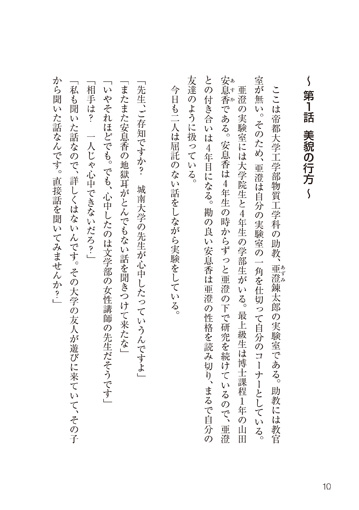 ～第１話　美貌の行方～
ここは帝都大学工学部物質工学科の助教、亜澄錬太郎の実験室である。助教には教官
あずみ
室が無い。そのため、亜澄は自分の実験室の一角を仕切って自分のコーナーとしている。
亜澄の実験室には大学院生と４年生の学部生がいる。最上級生は博士課程１年の山田
安息香である。安息香は４年生の時からずっと亜澄の下で研究を続けているので、亜澄
あすか
との付き合いは４年目になる。勘の良い安息香は亜澄の性格を読み切り、まるで自分の
友達のように扱っている。
今日も二人は屈託のない話をしながら実験をしている。
「先生、ご存知ですか？　城南大学の先生が心中したっていうんですよ」
「またまた安息香の地獄耳がとんでもない話を聞きつけて来たな」
「いやそれほどでも。でも、心中したのは文学部の女性講師の先生だそうです」
「相手は？　一人じゃ心中できないだろ？」
「私も聞いた話なので、詳しくはないんです。その大学の友人が遊びに来ていて、その子
から聞いた話なんです。直接話を聞いてみませんか？」
10